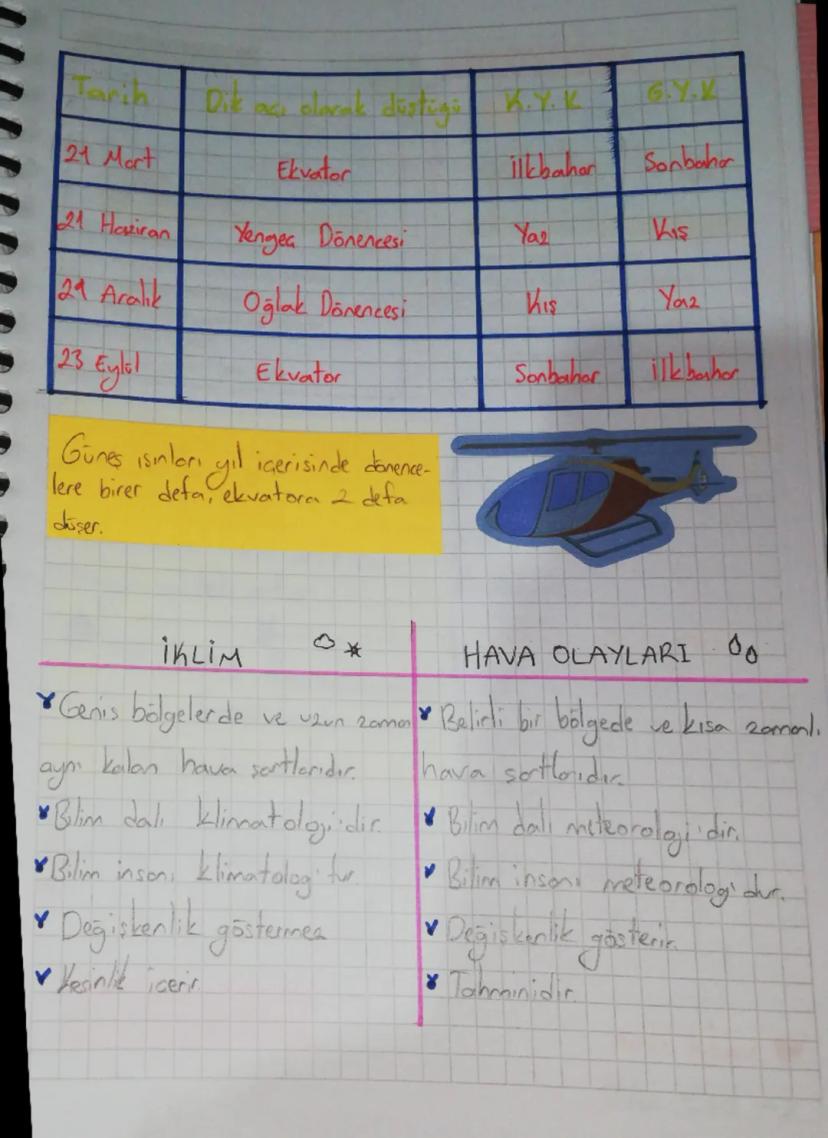 Tarih Dik açı olarak düştüğü K.Y.K G.Y.K
21 Mart Ekvator ilkbahar Sonbahar
21 Haziran Yengeç Dönencesi Yaz Kış
21 Aralık Oğlak Dönencesi Kış Yaz
23 Eylül Ekvator Sonbahar ilkbahar
Güneş ışınları yıl içerisinde dönence-
lere birer defa, ekvatora 2 defa
düşer.
İKLİM
Geniş bölgelerde ve uzun zaman
aynı kalan hava şartlarıdır.
Bilim dalı klimatoloji'dir.
Bilim insanı klimatolog'tur.
Değişkenlik göstermez
Kesinlik içerir.
HAVA OLAYLARI
Belirli bir bölgede ve kısa zamanlı
hava şartlarıdır.
Bilim dalı meteoroloji'dir.
Bilim insanı meteorolog'dur.
Değişkenlik gösterir.
Tahminidir.